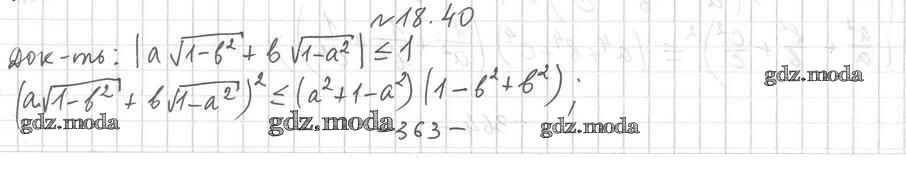 №18.40
док-ть: |a√(1-b²) + b√(1-a²)| ≤ 1
(a√(1-b²) + b√(1-a²))² ≤ (a²+1-a²)(1-b²+b²);
gdz.moda
gdz.moda gdz.moda -363- gdz.moda